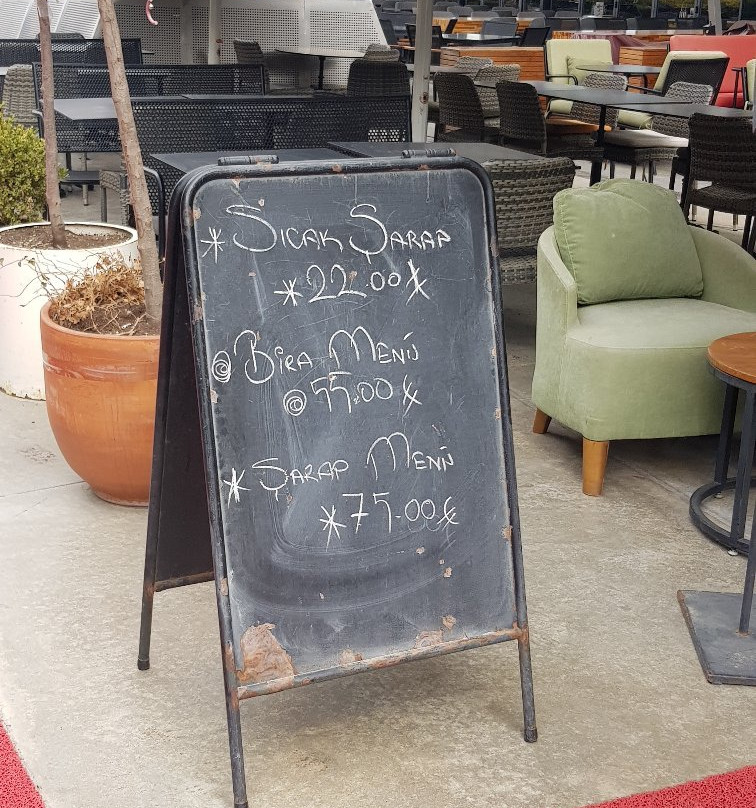 * Sıcak Şarap
* 22.00 ₺
@ Bira Menü
@ 55.00 ₺
* Şarap Menü
* 75.00 ₺